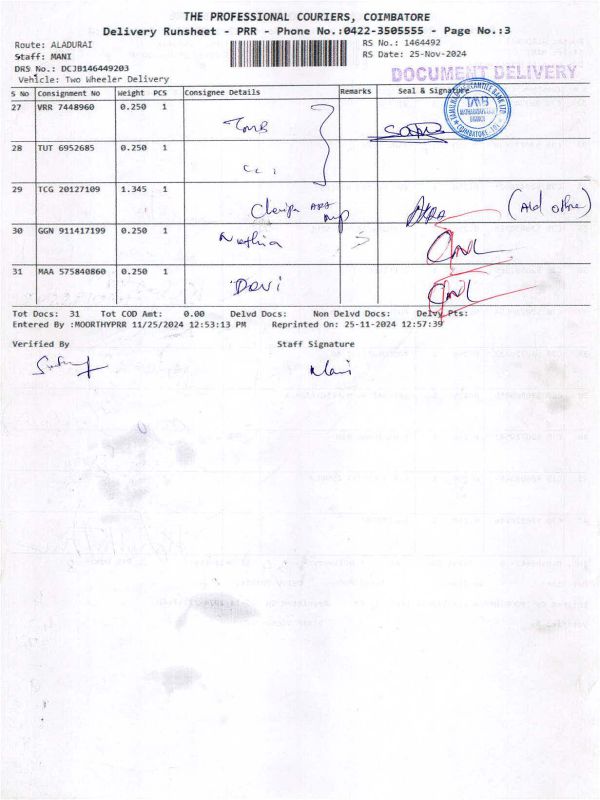 THE PROFESSIONAL COURIERS, COIMBATORE
Delivery Runsheet - PRR - Phone No.:0422-3505555 - Page No.:3
Route: ALADURAI RS No.: 1464492
Staff: MANI RS Date: 25-Nov-2024
DRS No.: DCJB146449203
DOCUMENT DELIVERY
Vehicle: Two Wheeler Delivery
S No Consignment No Weight PCS Consignee Details Remarks Seal & Signature
27 VRR 7448960 0.250 1 TMB
28 TUT 6952685 0.250 1
29 TCG 20127109 1.345 1
30 GGN 911417199 0.250 1 Nathia
31 MAA 575840860 0.250 1 Devi
TMB
BRANCH
COIMBATORE
Tot Docs: 31 Tot COD Amt: 0.00 Delvd Docs: Non Delvd Docs: Delvy Pts:
Entered By :MOORTHYPRR 11/25/2024 12:53:13 PM Reprinted On: 25-11-2024 12:57:39
Verified By Staff Signature
Mani